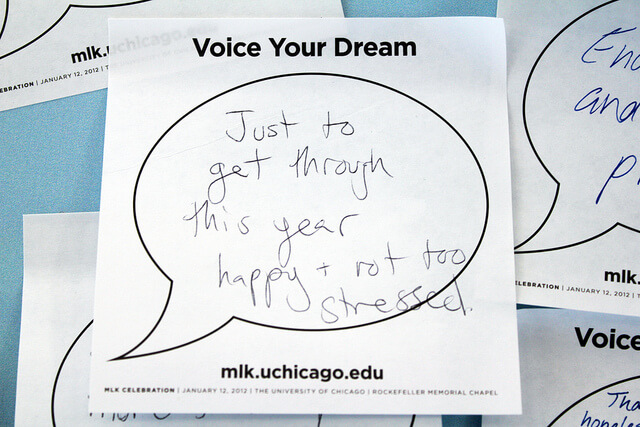 mlk.uchicago
EBRATION | JANUARY 12, 2012 | T
Voice Your Dream
Just to
get through
this year
happy + not too
stressed.
mlk.uchicago.edu
MLK CELEBRATION | JANUARY 12, 2012 | THE UNIVERSITY OF CHICAGO | ROCKEFELLER MEMORIAL CHAPEL
and
mlk.
ELEBRATION | JANUARY 12, 2012 | T
Voice